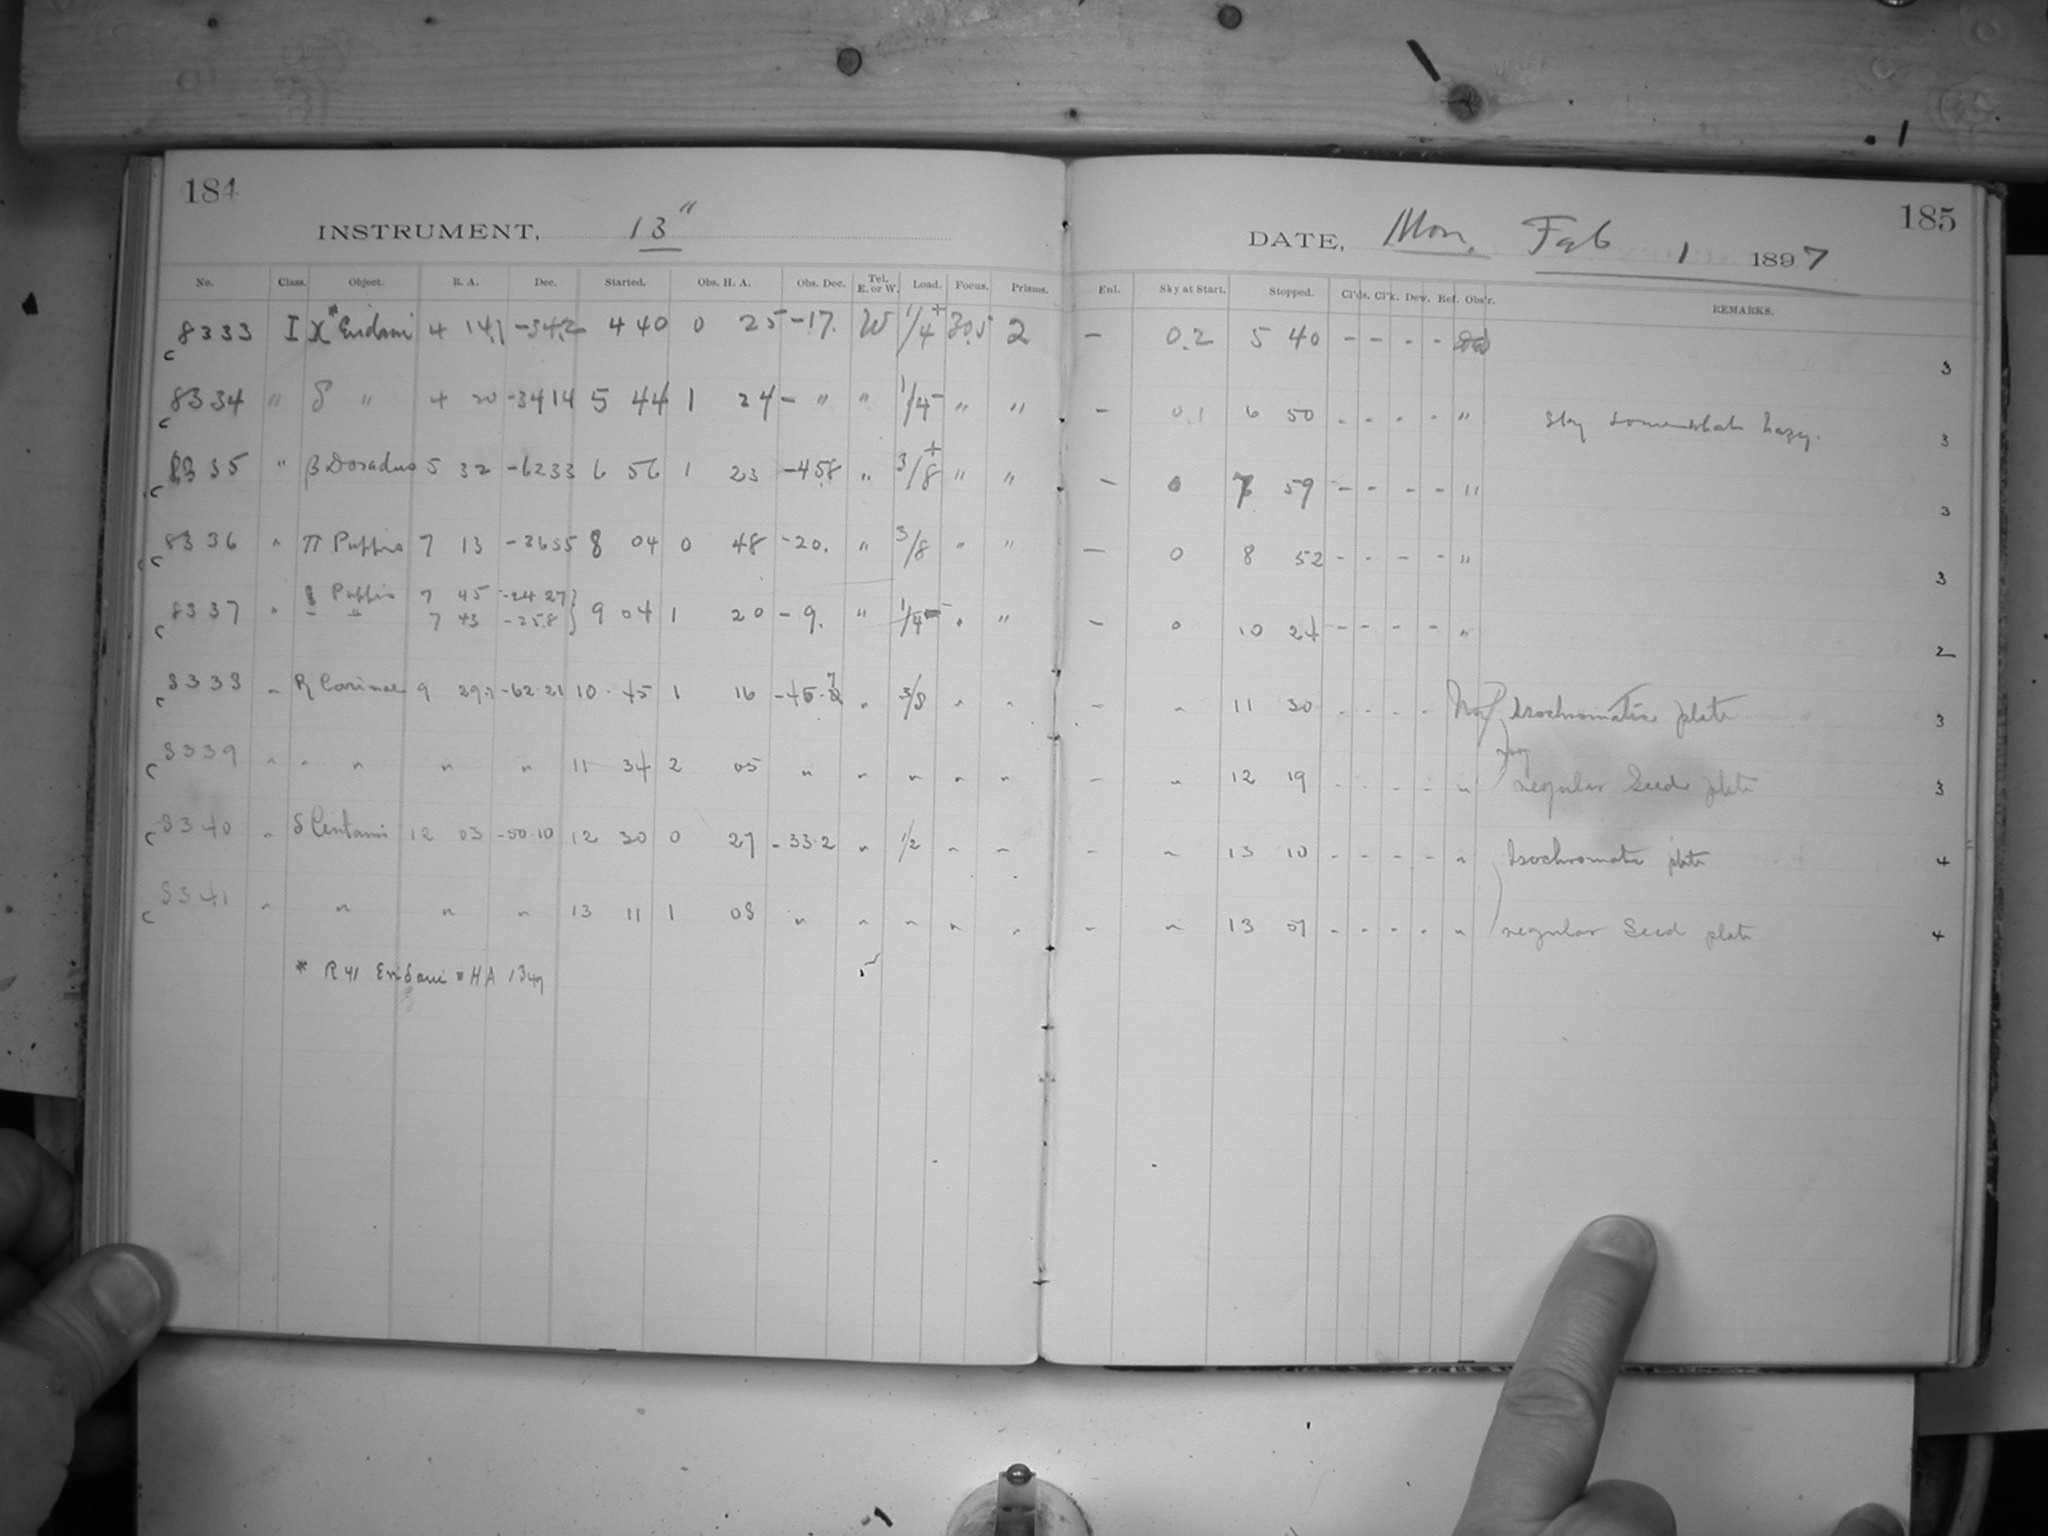 184
INSTRUMENT, 13"
No. Class. Object. R. A. Dec. Started. Obs. H. A. Obs. Dec. Tel. E. or W. Load. Focus. Prisms.
c 8333 I X* Eridani 4 14.1 -34.2 4 40 0 25 -17. W 1/4+ 30.5 2
c 8334 " δ " 4 20 -34 14 5 44 1 24 - " " 1/4- " "
c 8335 " β Doradus 5 32 -62 33 6 56 1 23 -45.8 " 3/8+ " "
c 8336 " π Puppis 7 13 -36 55 8 04 0 48 -20. " 3/8 " "
c 8337 " Puppis 7 45 -24 27 } 9 04 1 20 -9. " 1/4- " "
" 7 43 -25.8
c 8338 " R Carinae 9 29.7 -62.21 10 45 1 16 " 3/8 " "
c 8339 " " " " " 11 34 2 05 " " " " "
c 8340 " δ Centauri 12 03 -50.10 12 30 0 27 -33.2 " 1/2 " "
c 8341 " " " " 13 11 1 08 " " " " "
* R 41 Eridani = HA 1347
185
DATE, Mon. Feb 1 1897
Enl. Sky at Start. Stopped. Cl'ds. Cl'k. Dew. Ref. Obs'r. REMARKS.
- 0.2 5 40 - - - - 3
- 0.1 6 50 - - - - " Sky somewhat hazy. 3
- 0 7 59 - - - - " 3
- 0 8 52 - - - - " 3
- 0 10 24 - - - - " 2
- " 11 30 - - - - Isochromatic plate 3
- " 12 19 - - - - " regular Seed plate 3
- " 13 10 - - - - " Isochromatic plate 4
- " 13 - - - - " regular Seed plate 4